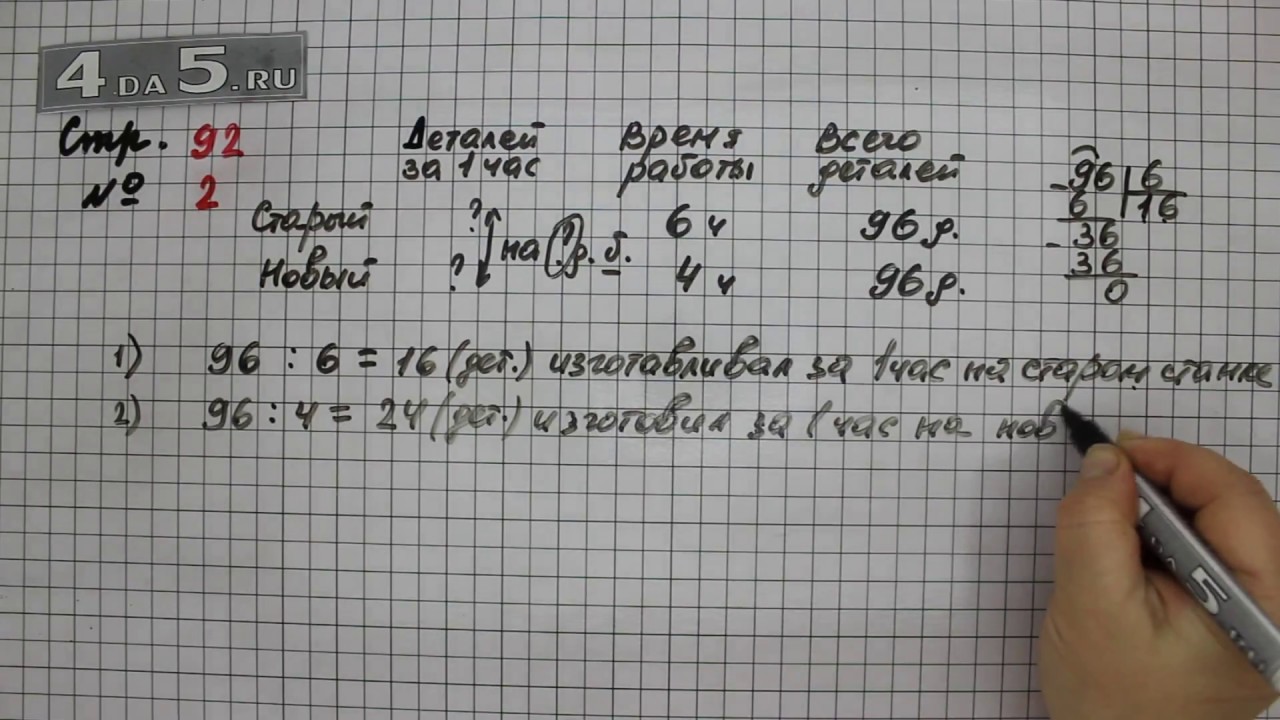 4DA5.RU
Стр. 92
№ 2
Деталей за 1 час
Время работы
Всего деталей
Старый ? 6 ч 96 д.
на ? д. б.
Новый ? 4 ч 96 д.
- 96 | 6
6 16
- 36
36
0
1) 96 : 6 = 16 (дет.) изготавливал за 1 час на старом станке
2) 96 : 4 = 24 (дет.) изготовил за 1 час на нов